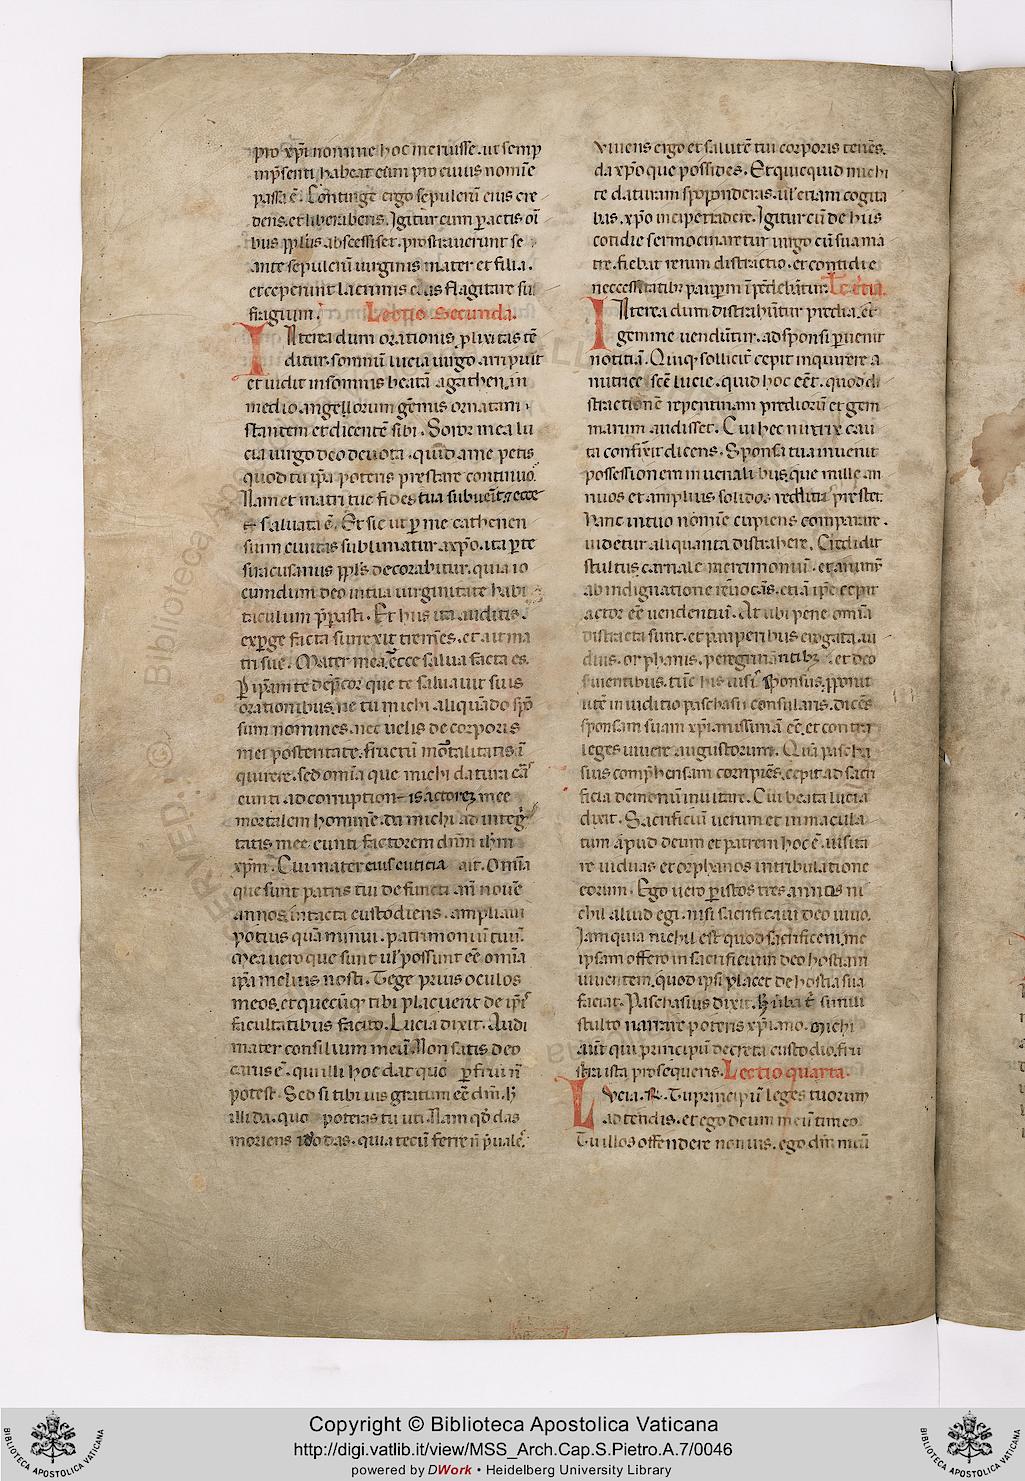 pro xp̄i nomine hoc meruisse. ut semp
inp̄senti habeat eum pro cuius nomie
passa ē. Continge ergo sepulcrū eius cre
dens. et liberaberis. Igitur cum p̄actis oī
bus pp̄lis abscessiset. prostraverunt se
ante sepulcrū uirginis mater et filia.
et ceperunt lacrimis eius flagitare suf
fragium.
Lectio secunda.
INterea dum orationis plixitas tē
ditur. somnū lucia uirgo arripuit
et uidit insomnis beatā agathen. in
medio angelorum gēmis ornatam
stantem et dicentē sibi. Soror mea lu
cia uirgo deo deuota. quid ame petis
quod tu ip̄a poteris prestare continuo.
Nam et matri tue fides tua subuēit. et ecce
saluata ē. Et sic ut p̄ me cathenen
sium ciuitas sublimatur axp̄o. ita p̄te
siracusanus pp̄ls decorabitur. quia io
cundum deo intua uirginitate habi
taculum p̄parasti. Et hiis ita auditis.
exp̄ge facta surrexit tremēs. et ait ma
tri sue. Mater mea ecce salua facta es.
P̄ ip̄am te dep̄cor que te saluauit suis
orationibus. ne tu michi aliquādo spō
sum nomines. nec uelis de corporis
mei posteritate. fructū mortalitatis ī
quirere. sed omīa que michi datura eās
eunti ad corruptionis actorez mee
mortalem hominē. da michi ad inteḡ
tatis mee eunti factorem dn̄m ih̄m
xp̄m. Cui mater eius euticia ait. Omīa
que sunt patris tui defuncti an̄ nouē
annos intacta custodiens. ampliaui
potius quā minui. patrimoniū tuū.
Mea uero que sunt ul' possunt eē omīa
ip̄a melius nosti. Tege prius oculos
meos. et quecūq tibi placuerit de ip̄is
facultatibus facito. Lucia dixit. Audi
mater consilium meū. Non satis deo
carus ē. qui illi hoc dat quo p̄frui n̄
potest. Sed si tibi uis gratum eē dn̄m. h̄
illi da. quo poteras tu uti. Nam qd̄ das
moriens ido das. quia tecū ferre n̄ p̄uales.
viuens ergo et salutē tui corporis tenēs.
da xp̄o que possides. Et quicquid michi
te daturam spoponderas. ul' etiam cogita
bas. xp̄o incipe tradere. Igitur cū de hiis
cotidie sermocinaretur uirgo cū sua ma
tre. fiebat rerum distractio. et contidie
neccessitatibȝ paup̄um īpēdebātur.
Lc̄ tertia.
INterea dum distrahūtur predia. et
gemme uendūtur. ad sponsi p̄uenit
notitiā. Quiq sollicitꝰ cepit inquirere a
nutrice scē lucie. quid hoc eēt. quod di
stractionē repentinam prediorū et gem
marum audisset. Cui hec nutrix cau
ta confixit dicens. Sponsa tua inuenit
possessionem inuenalibus. que mille an
nuos et amplius solidos redditus prestet.
hanc intuo nomīe cupiens comparare.
uidetur aliquanta distrahere. Credidit
stultus carnale mercimoniū. et animū
ab indignatione reuocās. etiā ip̄e cepit
actor eē uendentiū. At ubi pene omīa
distracta sunt. et pauperibus erogata. ui
duis. orphanis. peregrinantibȝ. et deo
seruientibus. tūc his uisis sponsus. pp̄onit
litē in iuditio paschasii consularis. dicēs
sponsam suam xp̄ianissimā eē. et contra
leges uiuere augustorum. Quā pascha
sius comp̄hensam corripiēs. cepit ad sacri
ficia demonū inuitare. Cui beata lucia
dixit. Sacrificiū uerum et inmacula
tum apud deum et patrem hoc ē. uisita
re uiduas et orphanos intribulatione
eorum. Ego uero p̄ istos tres annos ni
chil aliud egi. nisi sacrificaui deo uiuo.
Iam quia nichil est quod sacrificem. me
ipsam offero in sacrificium deo hostiam
uiuentem. quod ipsi placet de hostia sua
faciat. Paschasius dixit. H̄ uba t̄ simili
stulto narrare poteris xp̄iano. michi
aūt qui principū decreta custodio. fru
stra ista prosequeris.
Lectio quarta.
Lvcia. R̄. Tu principū leges tuorum
adtendis. et ego deum meū timeo
Tu illos offendere non uis. ego dn̄m meū
Copyright © Biblioteca Apostolica Vaticana
http://digi.vatlib.it/view/MSS_Arch.Cap.S.Pietro.A.7/0046
powered by DWork • Heidelberg University Library
BIBLIOTECA APOSTOLICA VATICANA
BIBLIOTECA APOSTOLICA VATICANA